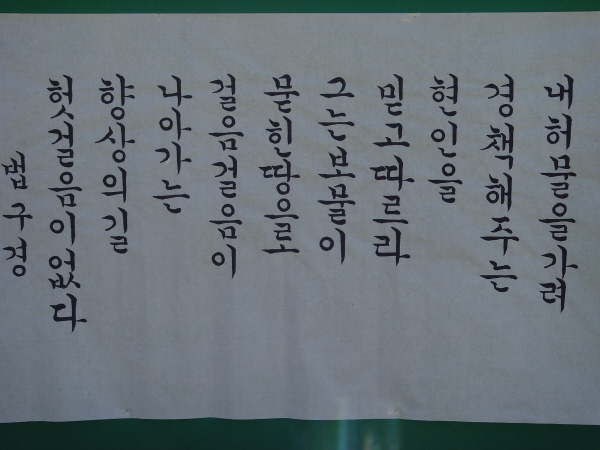 내허물을가려
경책해주는
현인을
믿고따르라
그는보물이
묻힌땅으로
걸음걸음이
나아가는
향상의길
헛걸음이없다
법구경